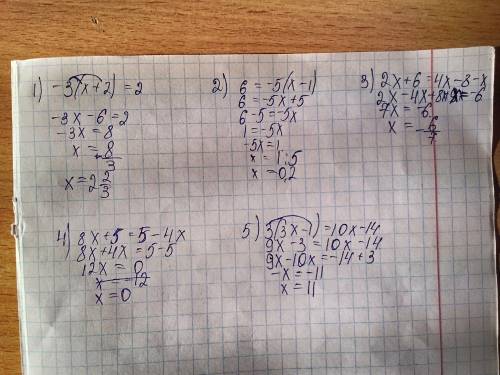 1) -3(x+2)=2
-3x-6=2
-3x=8
x=8/-3
x=2 2/3
2) 6=-5(x-1)
6=-5x+5
6-5=-5x
1=-5x
-5x=1
x=1:5
x=0,2
3) 2x+6=4x-8-x
7x=-6
x=-6/7
4) 8x+5=5-4x
8x+4x=5-5
12x=0
x=0
5) 3(3x-1)=10x-14
9x-3=10x-14
9x-10x=-14+3
-x=-11
x=11